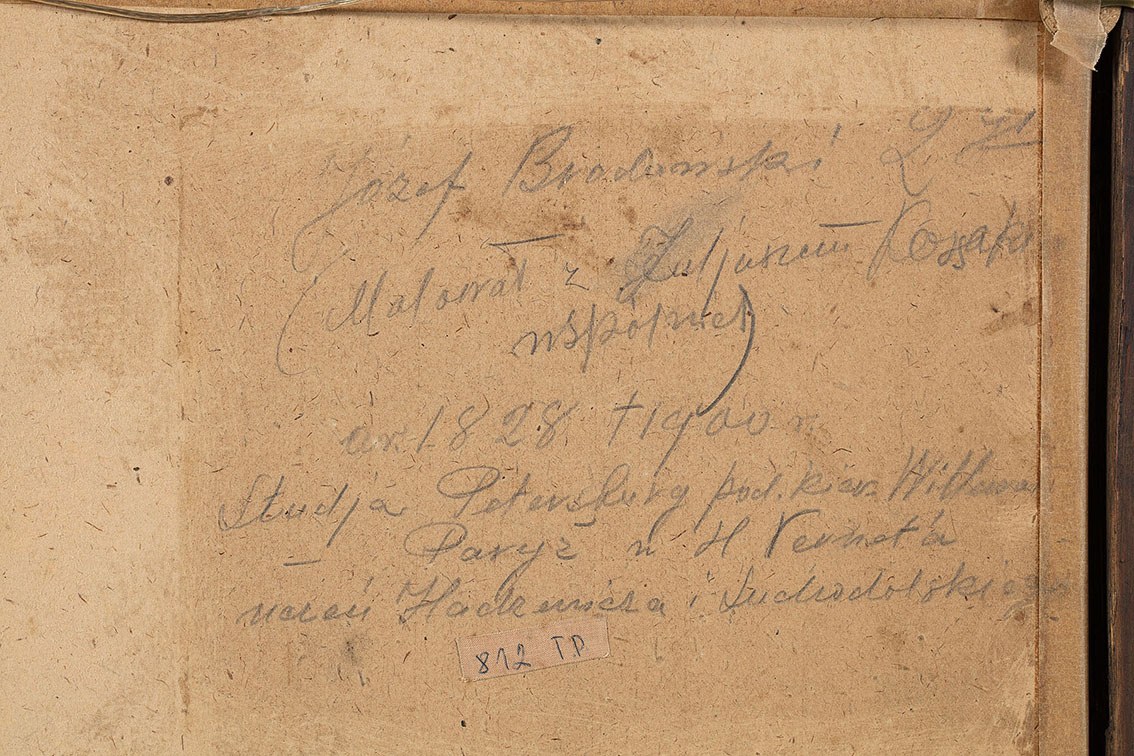 Józef Brodowski 2 gi
(Malował z Juljuszem Kossak
wspólnie)
ur. 1828 † 1900 r
Studja Petersburg pod. kier. Willewa
— Paryż u H Verneta
uczeń Hadzewicza i Suchodolskiego
812 TP